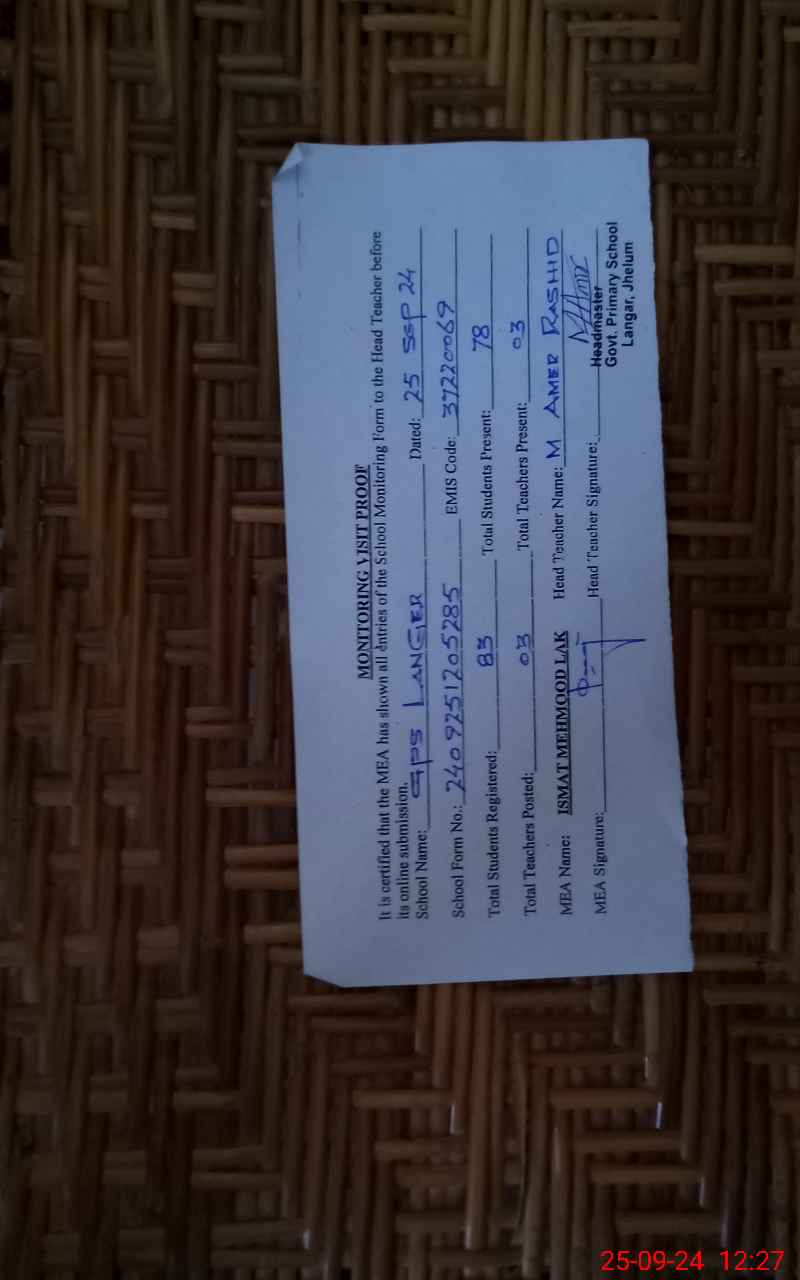 MONITORING VISIT PROOF
It is certified that the MEA has shown all entries of the School Monitoring Form to the Head Teacher before
its online submission.
School Name: GPS LANGER Dated: 25 SEP 24
School Form No.: 2409251205285 EMIS Code: 37220069
Total Students Registered: 83 Total Students Present: 78
Total Teachers Posted: 03 Total Teachers Present: 03
MEA Name: ISMAT MEHMOOD LAK Head Teacher Name: M AMER RASHID
MEA Signature: Head Teacher Signature:
Headmaster
Govt. Primary School
Langar, Jhelum
25-09-24 12:27